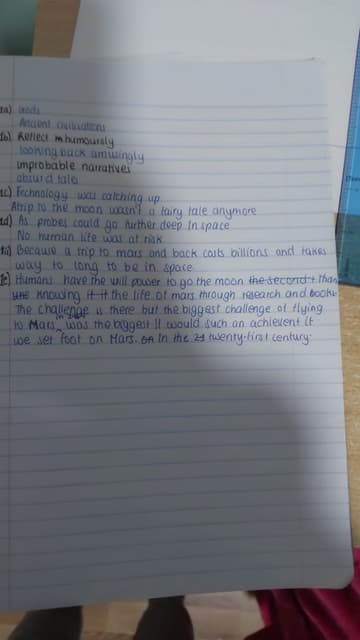 1a) Gods
Ancient civilisations
1b) Reflect humorously
looking back amusingly
improbable narratives
absurd tale
1c) Technology was catching up
A trip to the moon wasn't a fairy tale anymore
1d) As probes could go further deep in space
No human life was at risk
Because a trip to mars and back costs billions and takes
way to long to be in space
Humans have the will power to go the moon the second than
knowing it it the life of mars through research and books
The challenge is there but the biggest challenge of flying
to Mars, was the biggest It would such an achievent if
we set foot on Mars. on In the 21 twenty-first century.